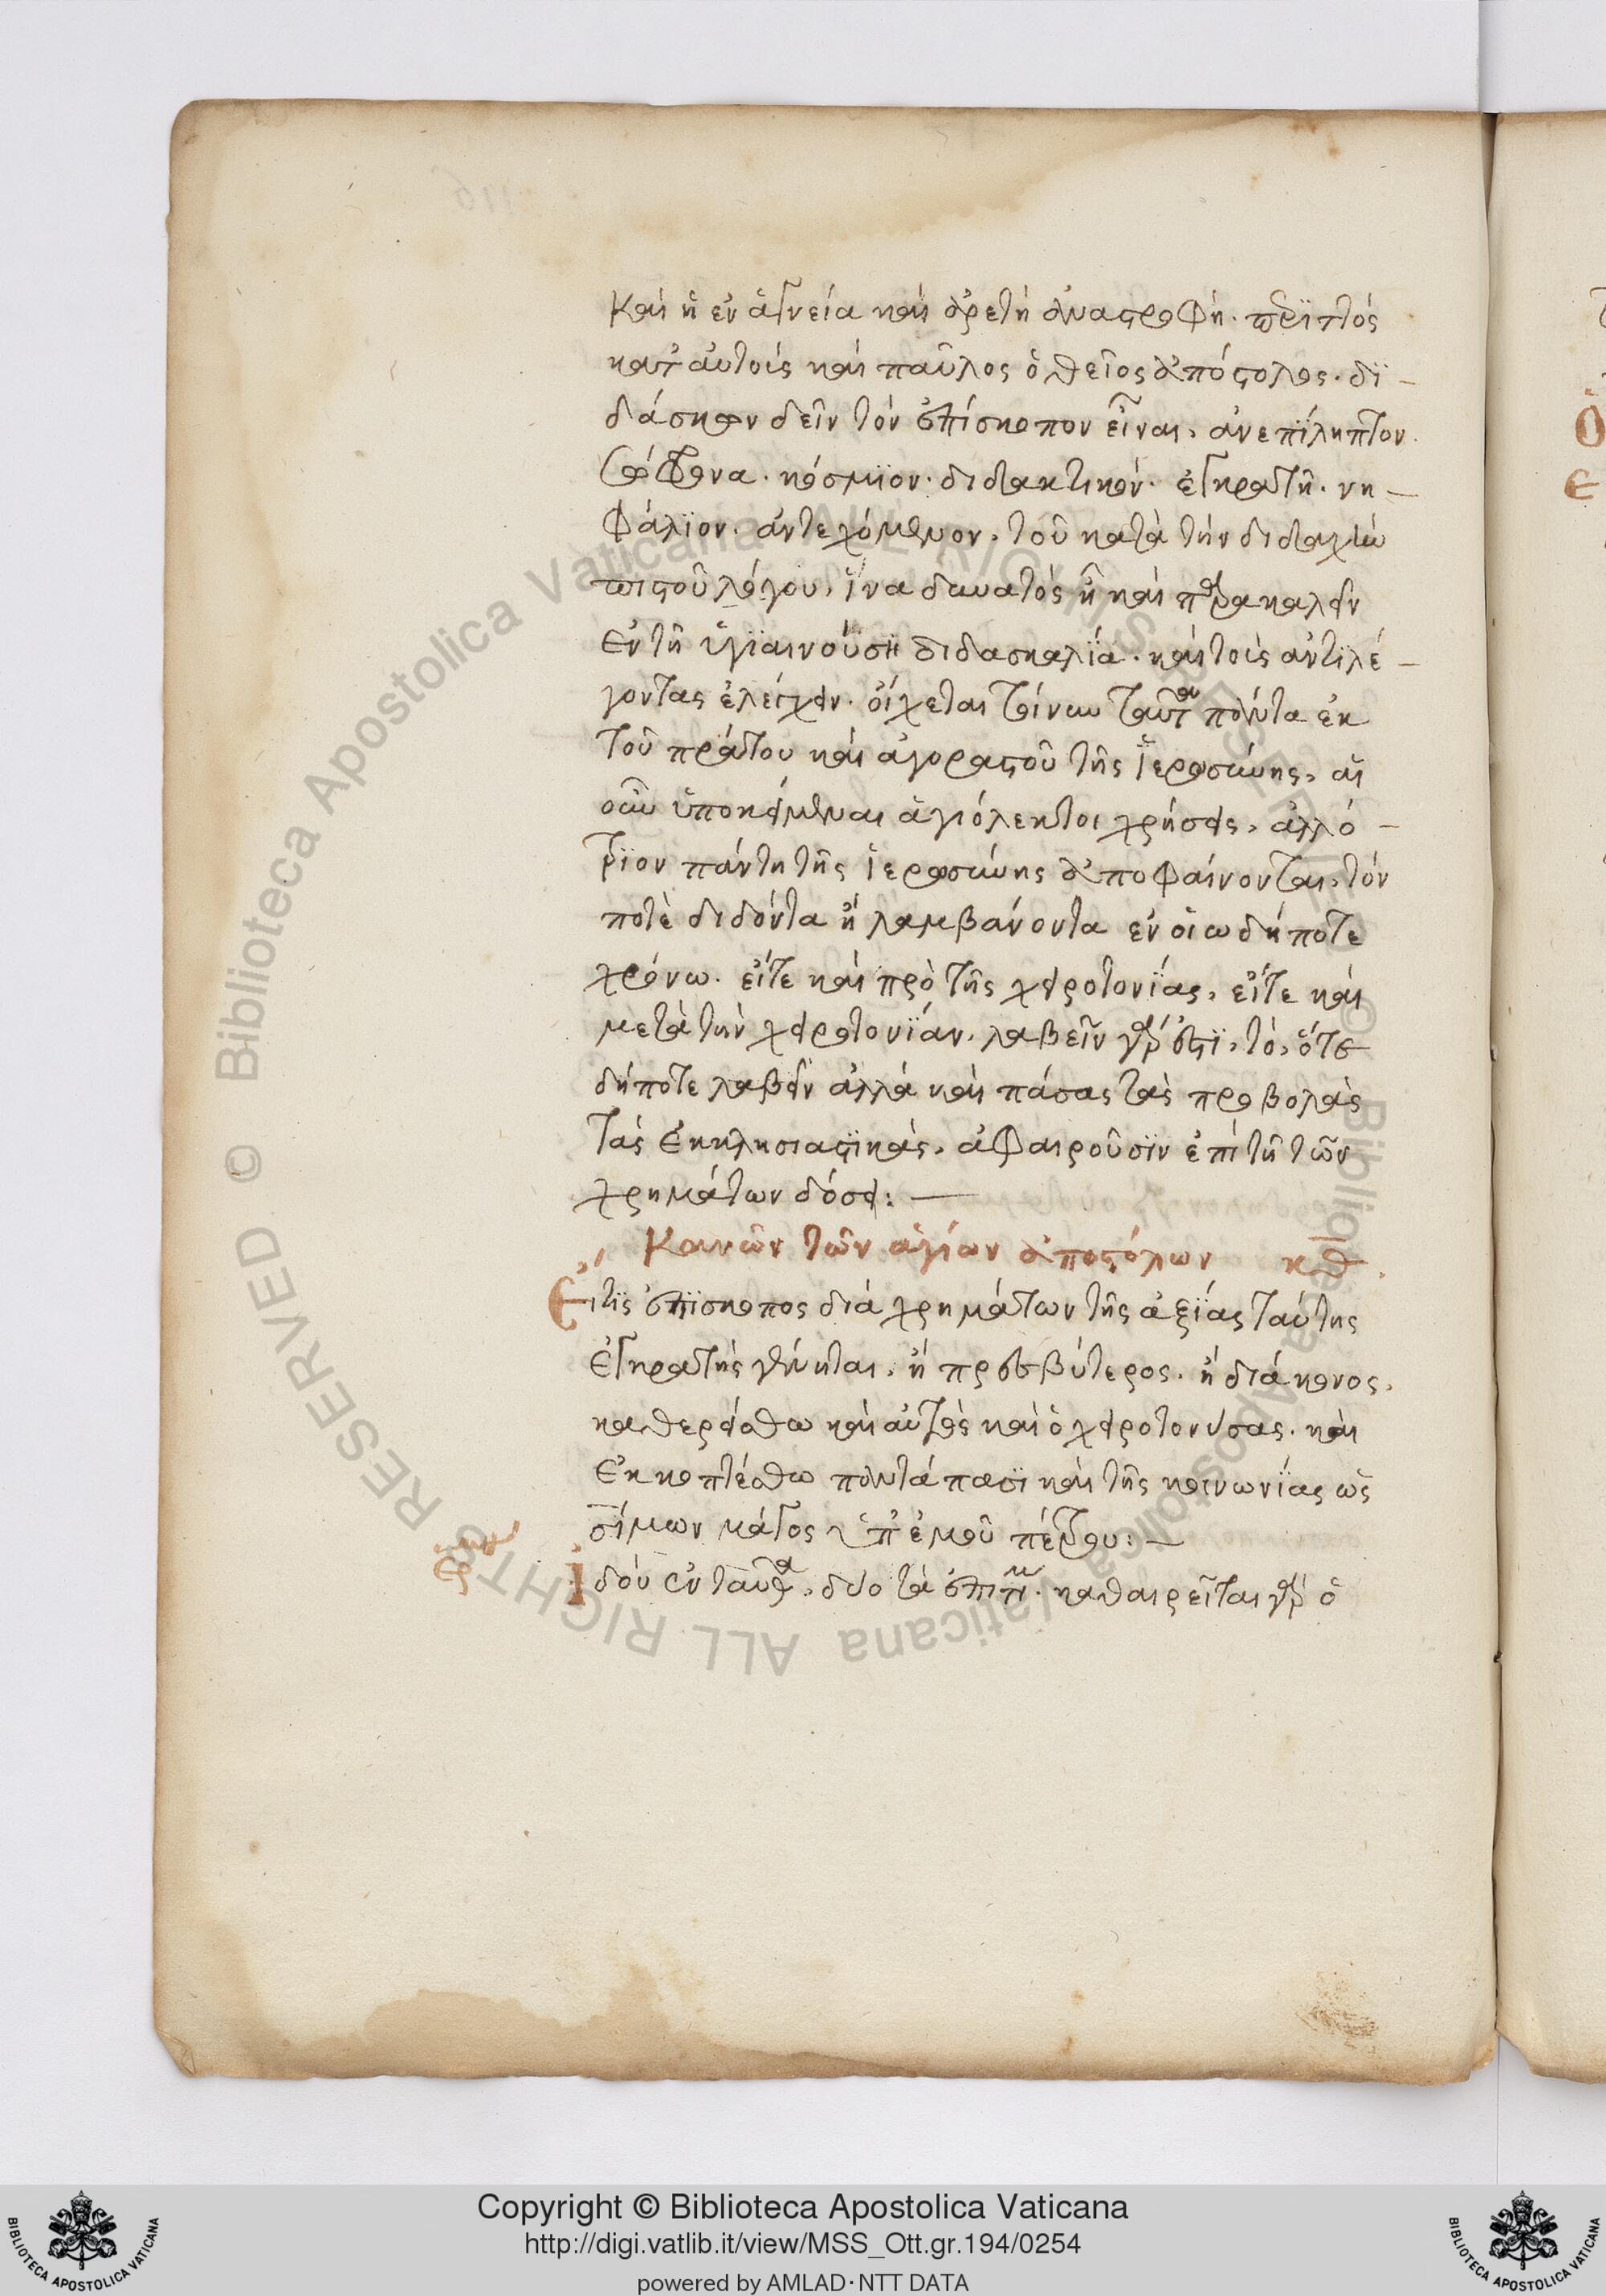 Καὶ ἡ ἐν ἁγνεία καὶ ἀρετῆ ἀναστροφή.
κατ αὐτοὺς καὶ παῦλος ὁ θεῖος ἀπόστολος. δϊ
δάσκων δεῖν τὸν ἐπίσκοπον εἶναι, ἀνεπίληπτον.
σώφρονα. κόσμϊον. διδακτικόν. ἐγκρατῆ. νη
φάλϊον. ἀντεχόμενον, τοῦ κατὰ τὴν διδαχὴν
πιστοῦ λόγου, ἵνα δυνατὸς ἦ καὶ παρακαλεῖν
ἐν τῆ ὑγϊαινούση διδασκαλϊα. καὶ τοὺς ἀντϊλέ
γοντας ἐλέγχειν. οἴχεται τοίνυν ταῦτα πάντα ἐκ
τοῦ πράτου καὶ ἀγοραστοῦ τῆς ἱερωσύνης, αἱ
οὖν ὑποκείμεναι ἁγιόλεκτοι χρήσεις, ἀλλό
τρϊον πάντη τῆς ἱερωσύνης ἀποφαίνονται, τόν
ποτὲ διδόντα ἢ λαμβάνοντα ἐν οἱωδήποτε
χρόνω. εἴτε καὶ πρὸ τῆς χειροτονϊας, εἴτε καὶ
μετὰ τὴν χειροτονϊαν. λαβεῖν γάρ ἐστϊ, τὸ, ὅτε
δήποτε λαβεῖν ἀλλὰ καὶ πάσας τὰς προβολὰς
τὰς ἐκκλησιαστϊκὰς, ἀφαιροῦσϊν ἐπὶ τῆ τῶν
χρημάτων δόσει: —
Κανὼν τῶν ἁγίων ἀποστόλων κθ
Εἴ τϊς ἐπϊσκοπος διὰ χρημάτων τῆς ἀξϊας ταύτης
ἐγκρατὴς γένηται, ἢ πρεσβύτερος. ἢ διάκονος,
καθερείσθω καὶ αὐτὸς καὶ ὁ χειροτονήσας. καὶ
ἐκκοπτέσθω παντάπασϊ καὶ τῆς κοινωνϊας ὡς
σίμων μάγος ὑπ ἐμοῦ πέτρου: —
Ἰδοὺ ἐνταῦθα, δύο τὰ ἐπιτίμια. καθαιρεῖται γὰρ ὁ
Copyright © Biblioteca Apostolica Vaticana
http://digi.vatlib.it/view/MSS_Ott.gr.194/0254
powered by AMLAD·NTT DATA